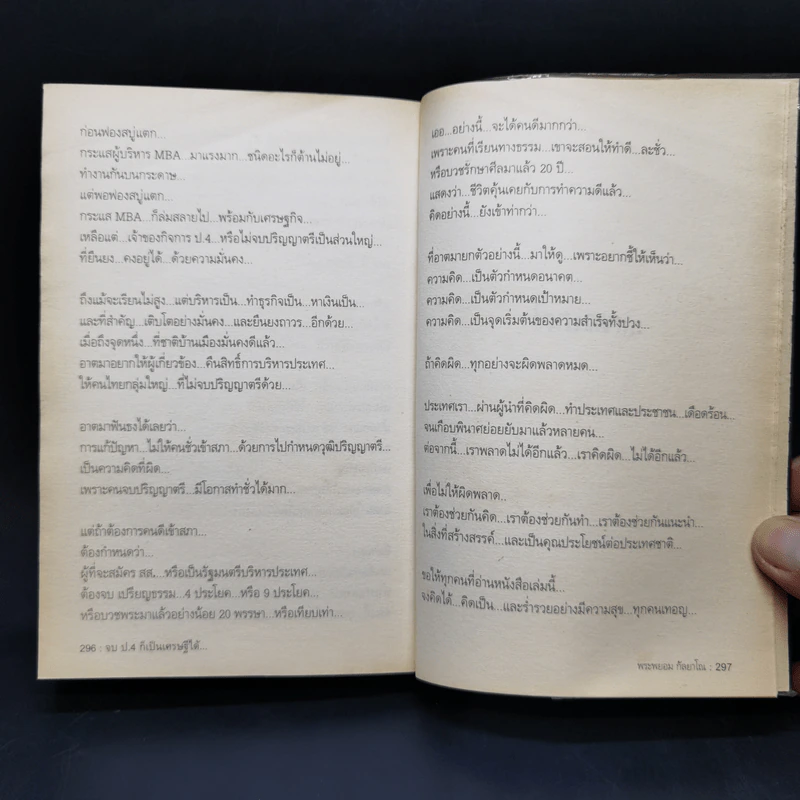 ก่อนฟองสบู่แตก...
กระแสผู้บริหาร MBA...มาแรงมาก...ชนิดอะไรก็ต้านไม่อยู่...
ทำงานกันบนกระดาษ...
แต่พอฟองสบู่แตก...
กระแส MBA...ก็ล่มสลายไป...พร้อมกับเศรษฐกิจ...
เหลือแต่...เจ้าของกิจการ ป.4...หรือไม่จบปริญญาตรีเป็นส่วนใหญ่...
ที่ยืนยง...คงอยู่ได้...ด้วยความมั่นคง...
ถึงแม้จะเรียนไม่สูง...แต่บริหารเป็น...ทำธุรกิจเป็น...หาเงินเป็น...
และที่สำคัญ...เติบโตอย่างมั่นคง...และยืนยงถาวร...อีกด้วย...
เมื่อถึงจุดหนึ่ง...ที่ชาติบ้านเมืองมั่นคงดีแล้ว...
อาตมาอยากให้ผู้เกี่ยวข้อง...คืนสิทธิ์การบริหารประเทศ...
ให้คนไทยกลุ่มใหญ่...ที่ไม่จบปริญญาตรีด้วย...
อาตมาฟันธงได้เลยว่า...
การแก้ปัญหา...ไม่ให้คนชั่วเข้าสภา...ด้วยการไปกำหนดวุฒิปริญญาตรี...
เป็นความคิดที่ผิด...
เพราะคนจบปริญญาตรี...มีโอกาสทำชั่วได้มาก...
แต่ถ้าต้องการคนดีเข้าสภา...
ต้องกำหนดว่า...
ผู้ที่จะสมัคร สส....หรือเป็นรัฐมนตรีบริหารประเทศ...
ต้องจบ เปรียญธรรม...4 ประโยค...หรือ 9 ประโยค...
หรือบวชพระมาแล้วอย่างน้อย 20 พรรษา...หรือเทียบเท่า...
296 : จบ ป.4 ก็เป็นเศรษฐีได้...
เออ...อย่างนี้...จะได้คนดีมากกว่า...
เพราะคนที่เรียนทางธรรม...เขาจะสอนให้ทำดี...ละชั่ว...
หรือบวชรักษาศีลมาแล้ว 20 ปี...
แสดงว่า...ชีวิตคุ้นเคยกับการทำความดีแล้ว...
คิดอย่างนี้...ยังเข้าท่ากว่า...
ที่อาตมายกตัวอย่างนี้...มาให้ดู...เพราะอยากชี้ให้เห็นว่า...
ความคิด...เป็นตัวกำหนดอนาคต...
ความคิด...เป็นตัวกำหนดเป้าหมาย...
ความคิด...เป็นจุดเริ่มต้นของความสำเร็จทั้งปวง...
ถ้าคิดผิด...ทุกอย่างจะผิดพลาดหมด...
ประเทศเรา...ผ่านผู้นำที่คิดผิด...ทำประเทศและประชาชน...เดือดร้อน...
จนเกือบพินาศย่อยยับมาแล้วหลายคน...
ต่อจากนี้...เราพลาดไม่ได้อีกแล้ว...เราคิดผิด...ไม่ได้อีกแล้ว...
เพื่อไม่ให้ผิดพลาด..
เราต้องช่วยกันคิด...เราต้องช่วยกันทำ...เราต้องช่วยกันแนะนำ...
ในสิ่งที่สร้างสรรค์...และเป็นคุณประโยชน์ต่อประเทศชาติ...
ขอให้ทุกคนที่อ่านหนังสือเล่มนี้...
จงคิดได้...คิดเป็น...และร่ำรวยอย่างมีความสุข...ทุกคนเทอญ...
พระพยอม กัลยาโณ : 297